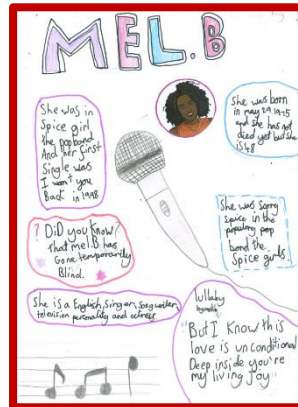 MEL.B
She was in
Spice girl
the popband
And her first
Single was
I won't you
Back in 1998
She was born
in may 29 1975
and she has not
died yet but she
is 48
? DiD you know?
That mel.B has
Gone temporarily
Blind.
She was scary
spice in the
populay pop
band the
Spice gurls.
She is a English, singer, song writer,
television personality and actress.
lullaby
"But I know this
love is unconditional
Deep inside you're
my living joy"